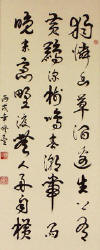 獨憐幽草澗邊生上有
黃鸝深樹鳴春潮帶雨
晚來急野渡無人舟自橫
丙戌